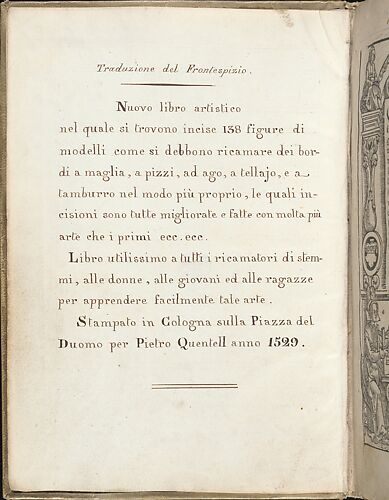 Traduzione del Frontespizio.
Nuovo libro artistico
nel quale si trovono incise 138 figure di
modelli come si debbono ricamare dei bor-
di a maglia, a pizzi, ad ago, a tellajo, e a
tamburro nel modo più proprio, le quali in-
cisioni sono tutte migliorate e fatte con molta più
arte che i primi ecc. ecc.
Libro utilissimo a tutti i ricamatori di stem-
mi, alle donne, alle giovani ed alle ragazze
per apprendere facilmente tale arte.
Stampato in Cologna sulla Piazza del
Duomo per Pietro Quentell anno 1529.